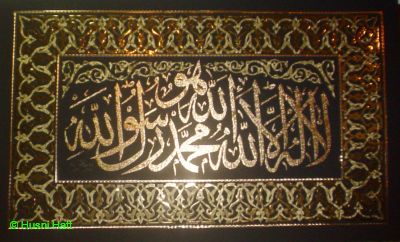 لا اله الا الله محمد رسول الله
© Husni Hafi